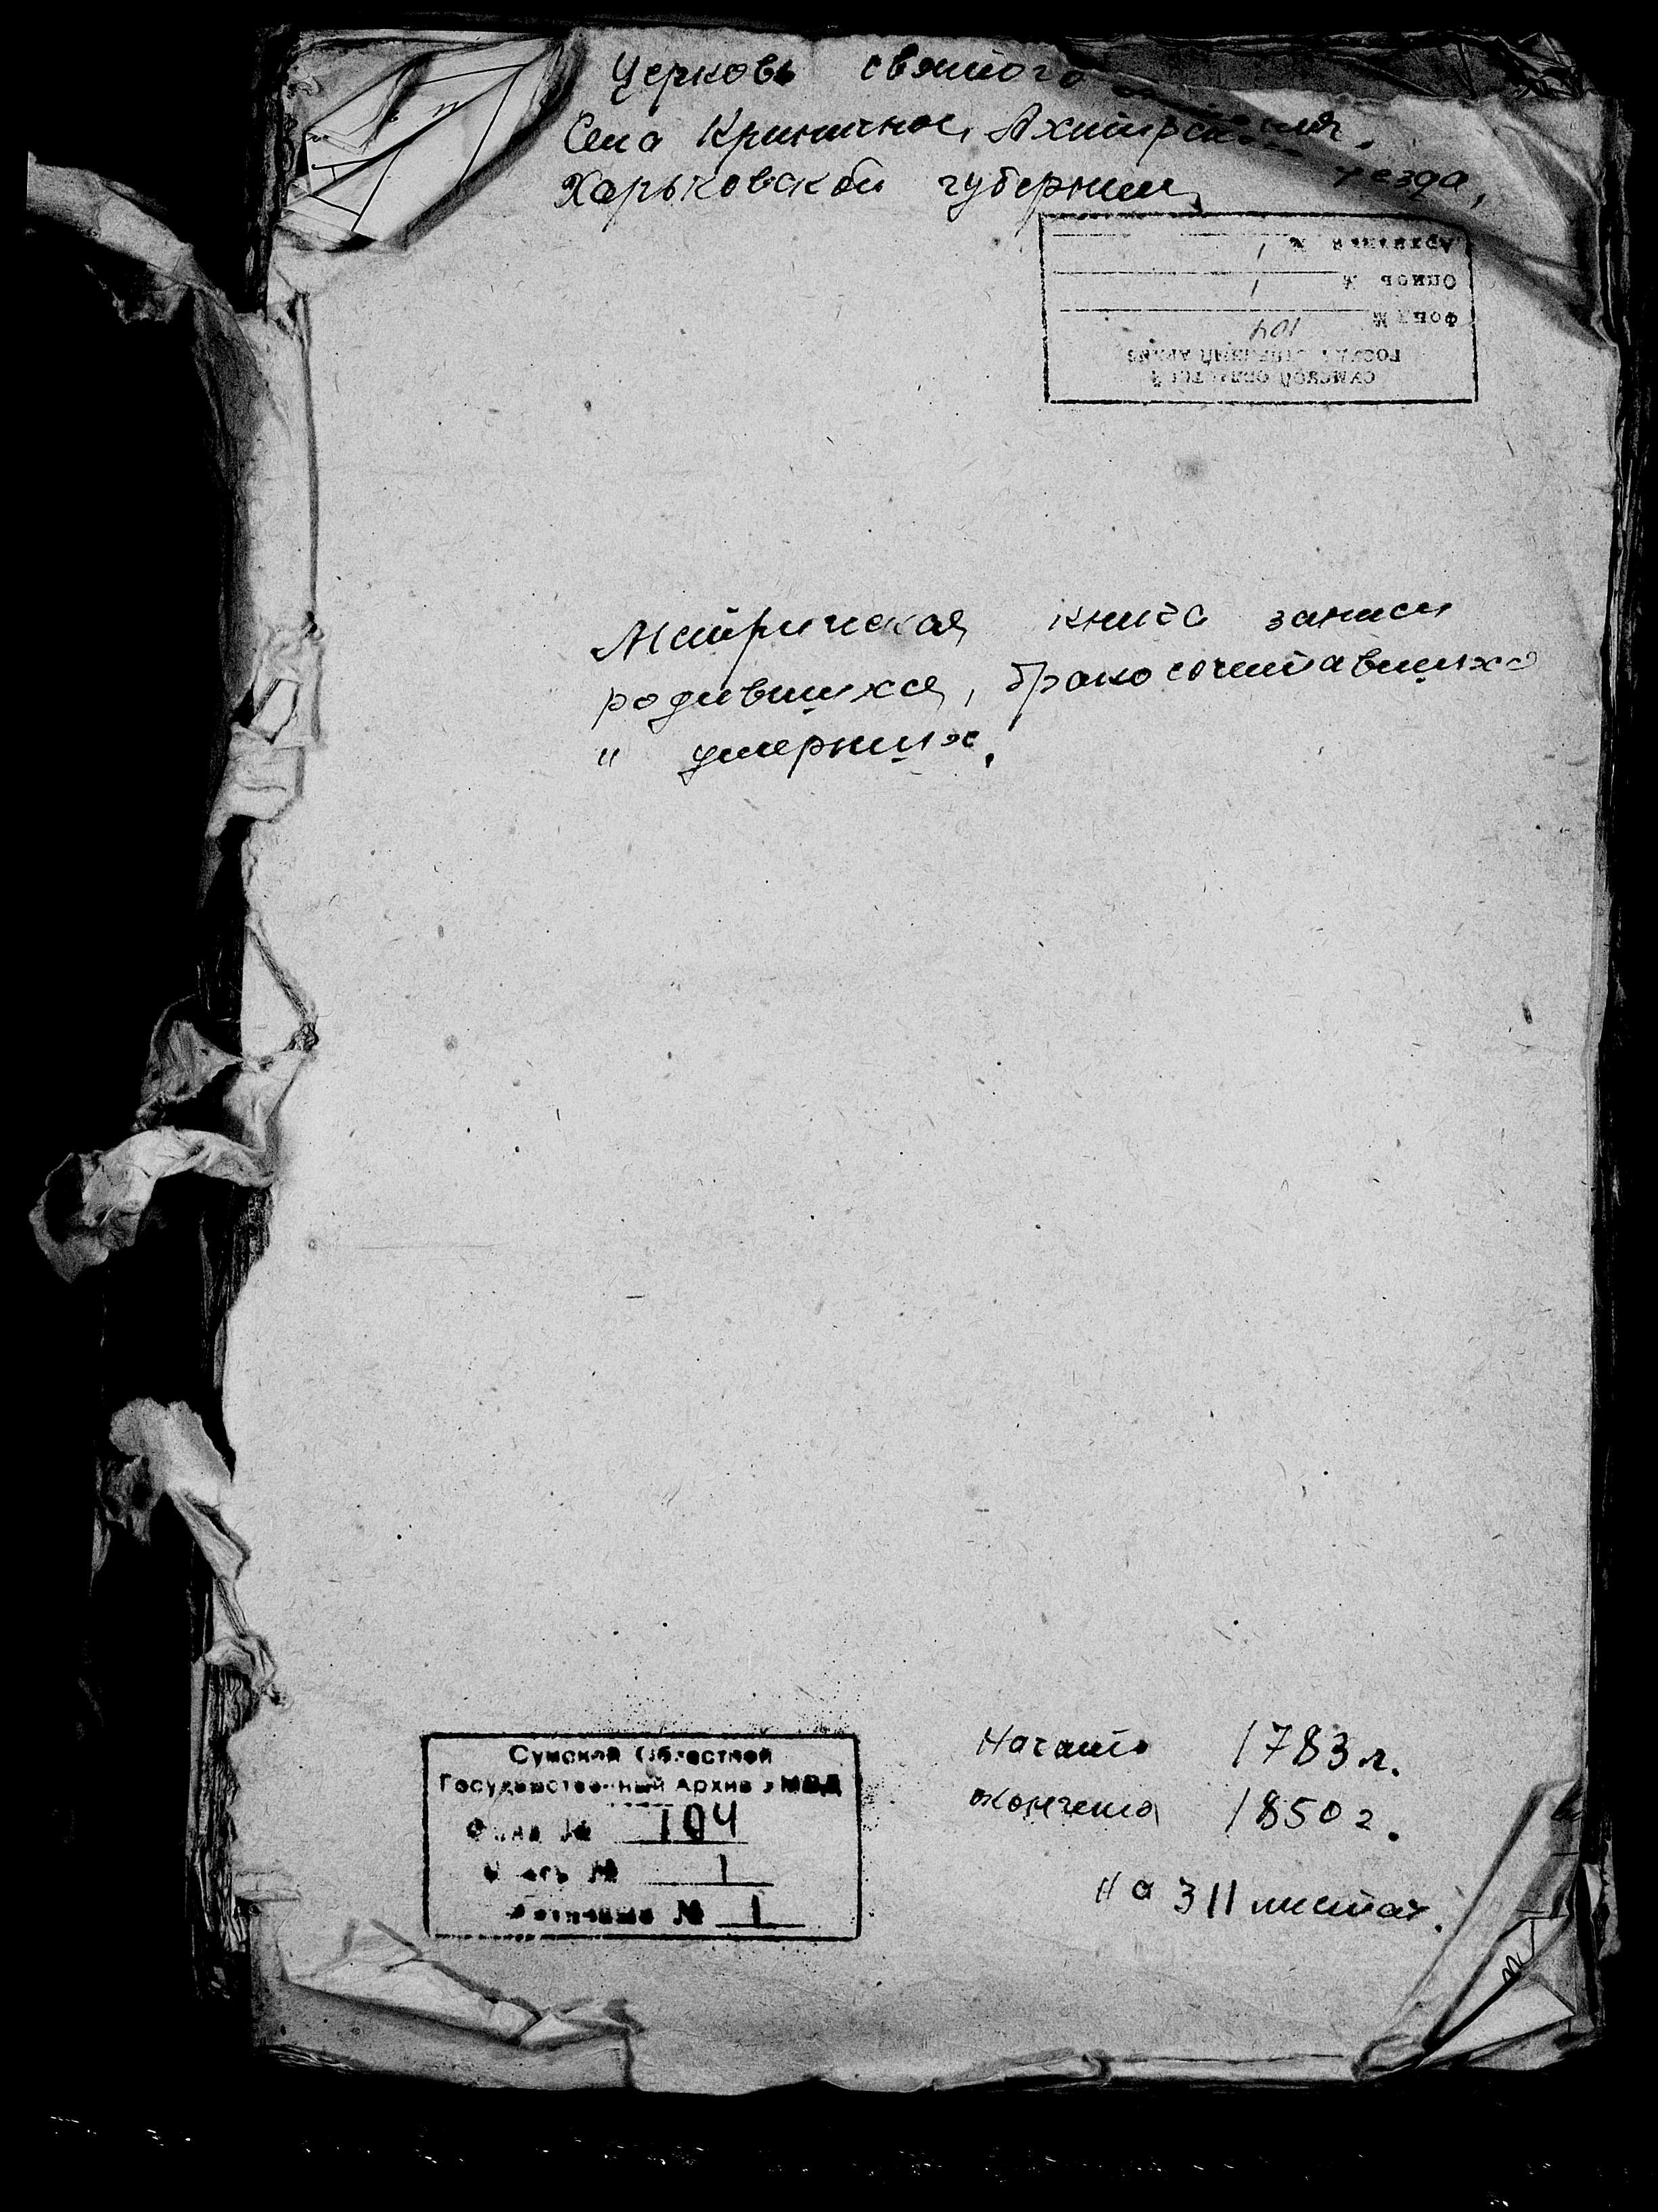 Церковь святого
Села Криничное, Ахтырск
Харьковской губернии, уезда,
Архивная № 1
Опись № 1
Фонд № 104
ГОСУДАРСТВЕННЫЙ АРХИВ
СУМСКОЙ ОБЛАСТНОЙ
Метрическая книга записи
родившихся, бракосочетавшихся
и умерших.
Начато 1783 г.
окончено 1850 г.
на 311 листах.
Сумской Областной
Государственный Архив УМВД
Фонд № 104
Опись № 1
№ 1